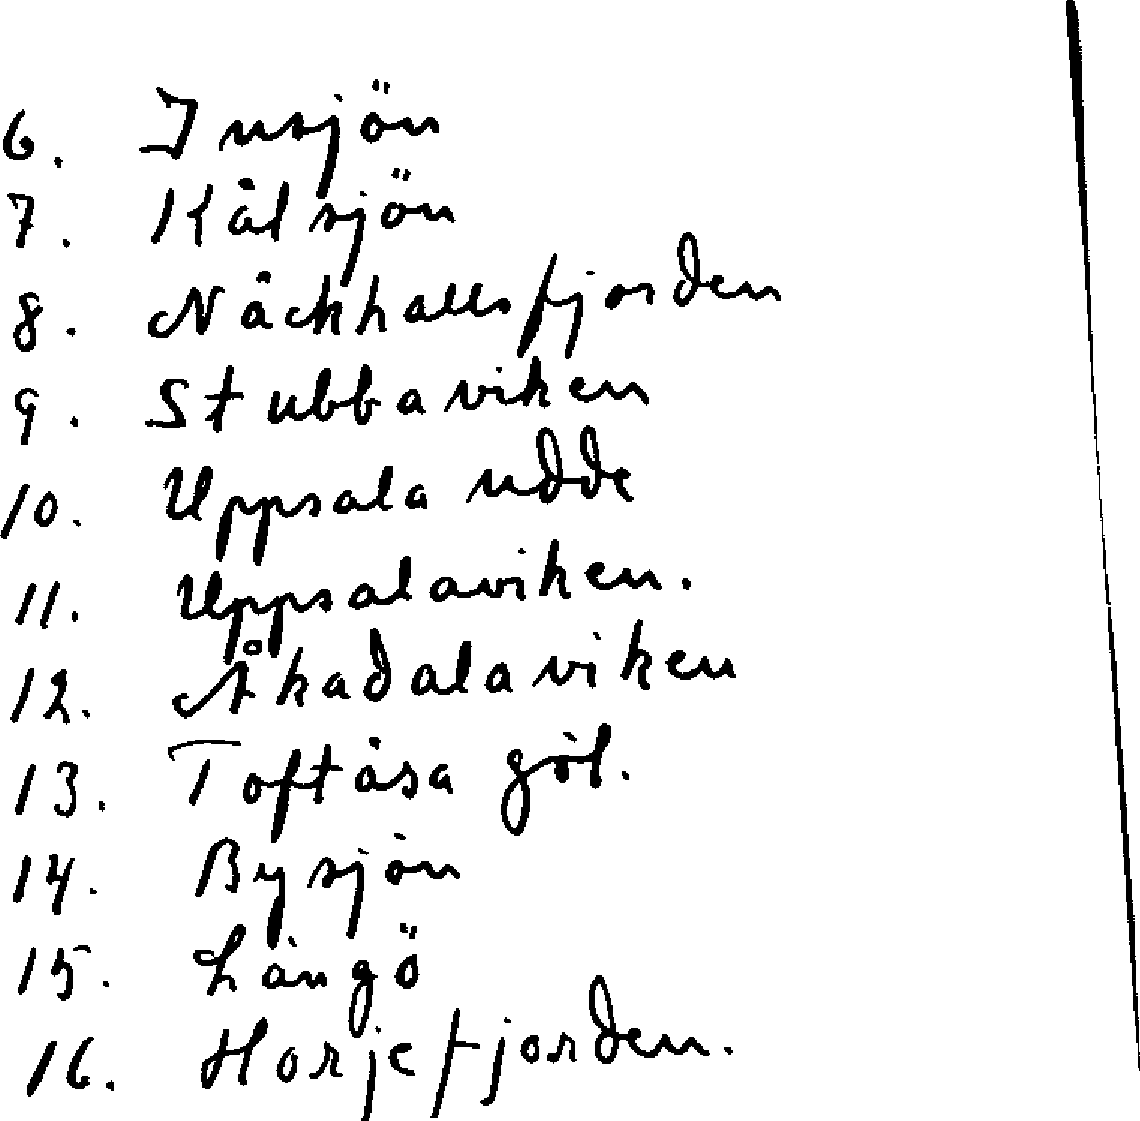 6. Insjön
7. Kålsjön
8. Nåckhallsfjorden
9. Stubbaviken
10. Uppsala udde
11. Uppsalaviken.
12. Åkadalaviken
13. Toftåsa göl.
14. Bysjön
15. Långö
16. Horjefjorden.